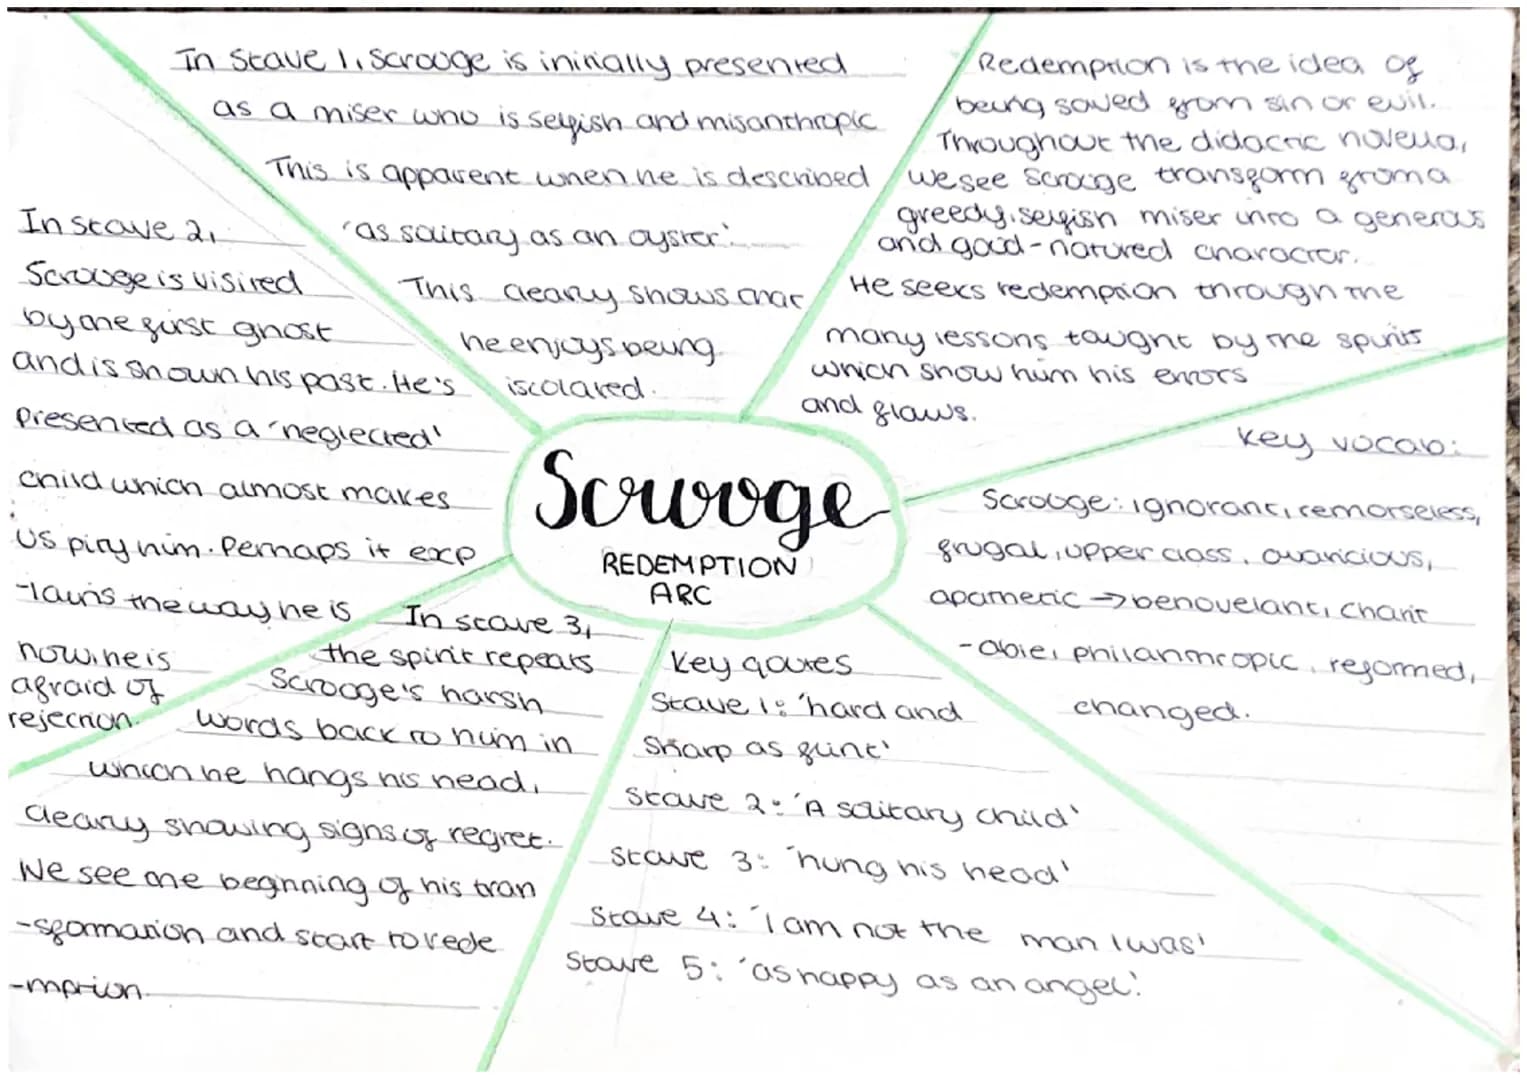 In Stave 1, Scrooge is initially presented
as a miser who is selfish and misanthropic
This is apparent when he is described
'as solitary as an oyster'.
This clearly shows that
he enjoys being
iscolated.
Redemption is the idea of
being saved from sin or evil.
Throughout the didactic novella,
we see Scrooge transform from a
greedy, selfish miser into a generous
and good-natured character.
He seeks redemption through the
many lessons taught by the spirits
which show him his errors
and flaws.
In stave 2,
Scrooge is visited
by the first ghost
and is shown his past. He's
presented as a 'neglected'
child which almost makes
us pity him. Perhaps it exp
-lains the way he is
now. he is
afraid of
rejection.
Scrooge
REDEMPTION
ARC
Key vocab:
Scrooge: ignorant, remorseless,
frugal, upper class, avaricious,
apathetic → benovelant, charit
-able, philanthropic, reformed,
changed.
In stave 3,
the spirit repeats
Scrooge's harsh
words back to him in
which he hangs his head,
clearly showing signs of regret.
We see the beginning of his tran
-sformation and start to rede
-mption.
Key qoutes
Stave 1: 'hard and
sharp as flint'
Stave 2: 'A solitary child'
Stave 3: 'hung his head'
Stave 4: 'I am not the man I was'
Stave 5: 'as happy as an angel'.